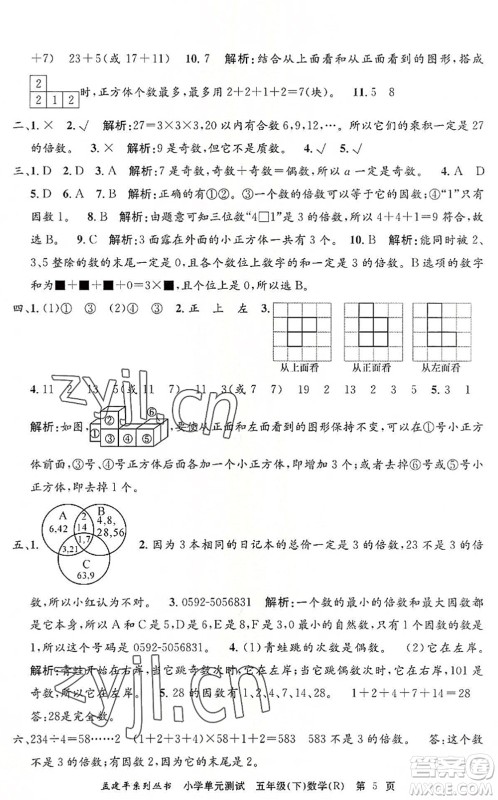 +7)　23+5(或 17+11)　10.7　解析:结合从上面看和从正面看到的图形,当搭成
2
2 1 2
时,正方体个数最多,最多用 2+2+1+2=7(块)。　11.5　8
二、1.×　2.√　解析:27=3×3×3,27的倍数的个数含有因数 6,9,12,…。它们的乘积一定是 27
的倍数。　3.×　解析:9 是奇数,但它不是质数。　4.√
三、1.D　2.A　3.D　解析:7 是奇数,奇数+奇数=偶数,所以 a 一定是奇数。　4.A　D
5.D　6.A　7.B　解析:正确的有①②③。③一个数的倍数可以等于它的因数;④“1”只有
因数 1。　8.B　解析:由题意可知三位数“4□1”是 3 的倍数,所以 4+4+1=9 符合,故
选 B。　9.C　解析:3 面露在外面的小正方体一共有 3 个。　10.B　解析:能同时被 2、
3、5整除的数的末尾一定是 0,且各个数位上数字的和一定是 3 的倍数。B 选项的数的末
尾是 0,且■+■+■+0=■×3,是 3 的倍数,所以选 B。
四、1.(1)①　③　(2)①　③　④　2.正　上　左　3.
从上面看　从正面看　从左面看
4.11　2　13　5(或 11　7)　13　11(或 17　7)　7　19　13　2　3　5　5.3　1
① ② ③ ④ ⑤ ⑥
解析:如图,,要使从正面和左面看到的图形保持不变,可以在①号小正方
体前面或后面添,③号、④号、⑤号小正方体前面添,②号、⑥号小正方体后面添。
五、1.
A　B　C
6,42　2　14　4,8,　28,56　1,7　3,21　63,9
2.因为 3 本相同的日记本的总价一定是 3 的倍数,23 不是 3 的倍
数,所以小红认为不对。　3.0592-5056831　解析:一个数的最小的倍数和最大的因数
是它本身,所以 A 和 C 是 5,D 是 6,E 是 8,F 是 3,G 是 1,B 是 9,H 既不是质数也不是合
数,所以这个号码是 0592-5056831。　4.(1)青蛙跳的次数是偶数,它在左岸。　(2)右岸
解析:青蛙开始在左岸,当它跳奇数次时,它在右岸;当它跳偶数次时,它在左岸,101 是
奇数,所以它在右岸。　5.28 的因数有 1,2,4,7,14,28。　1+2+4+7+14=28
答:28是完全数。
六、234÷4=58……2　(1+2+3+4)×58+1+2=583　答:这 234 个数字的和是 583。
孟建平系列丛书　小学单元测试　五年级(下)数学(R)　第 5 页
zyjl.cn
zyjl.cn